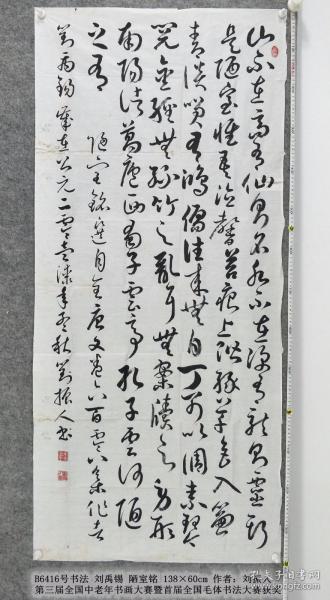 山不在高有仙则名水不在深有龙则灵斯
是陋室惟吾德馨苔痕上阶绿草色入帘
青谈笑有鸿儒往来无白丁可以调素琴
阅金经无丝竹之乱耳无案牍之劳形
南阳诸葛庐西蜀子云亭孔子云何陋
之有
陋室铭选自全唐文卷六百零八集作者
刘禹锡 岁在公元二零
年 秋 刘振人书
B6416号书法 刘禹锡 陋室铭 138×60cm 作者:刘振人
第三届全国中老年书画大赛暨首届全国毛体书法大赛获奖